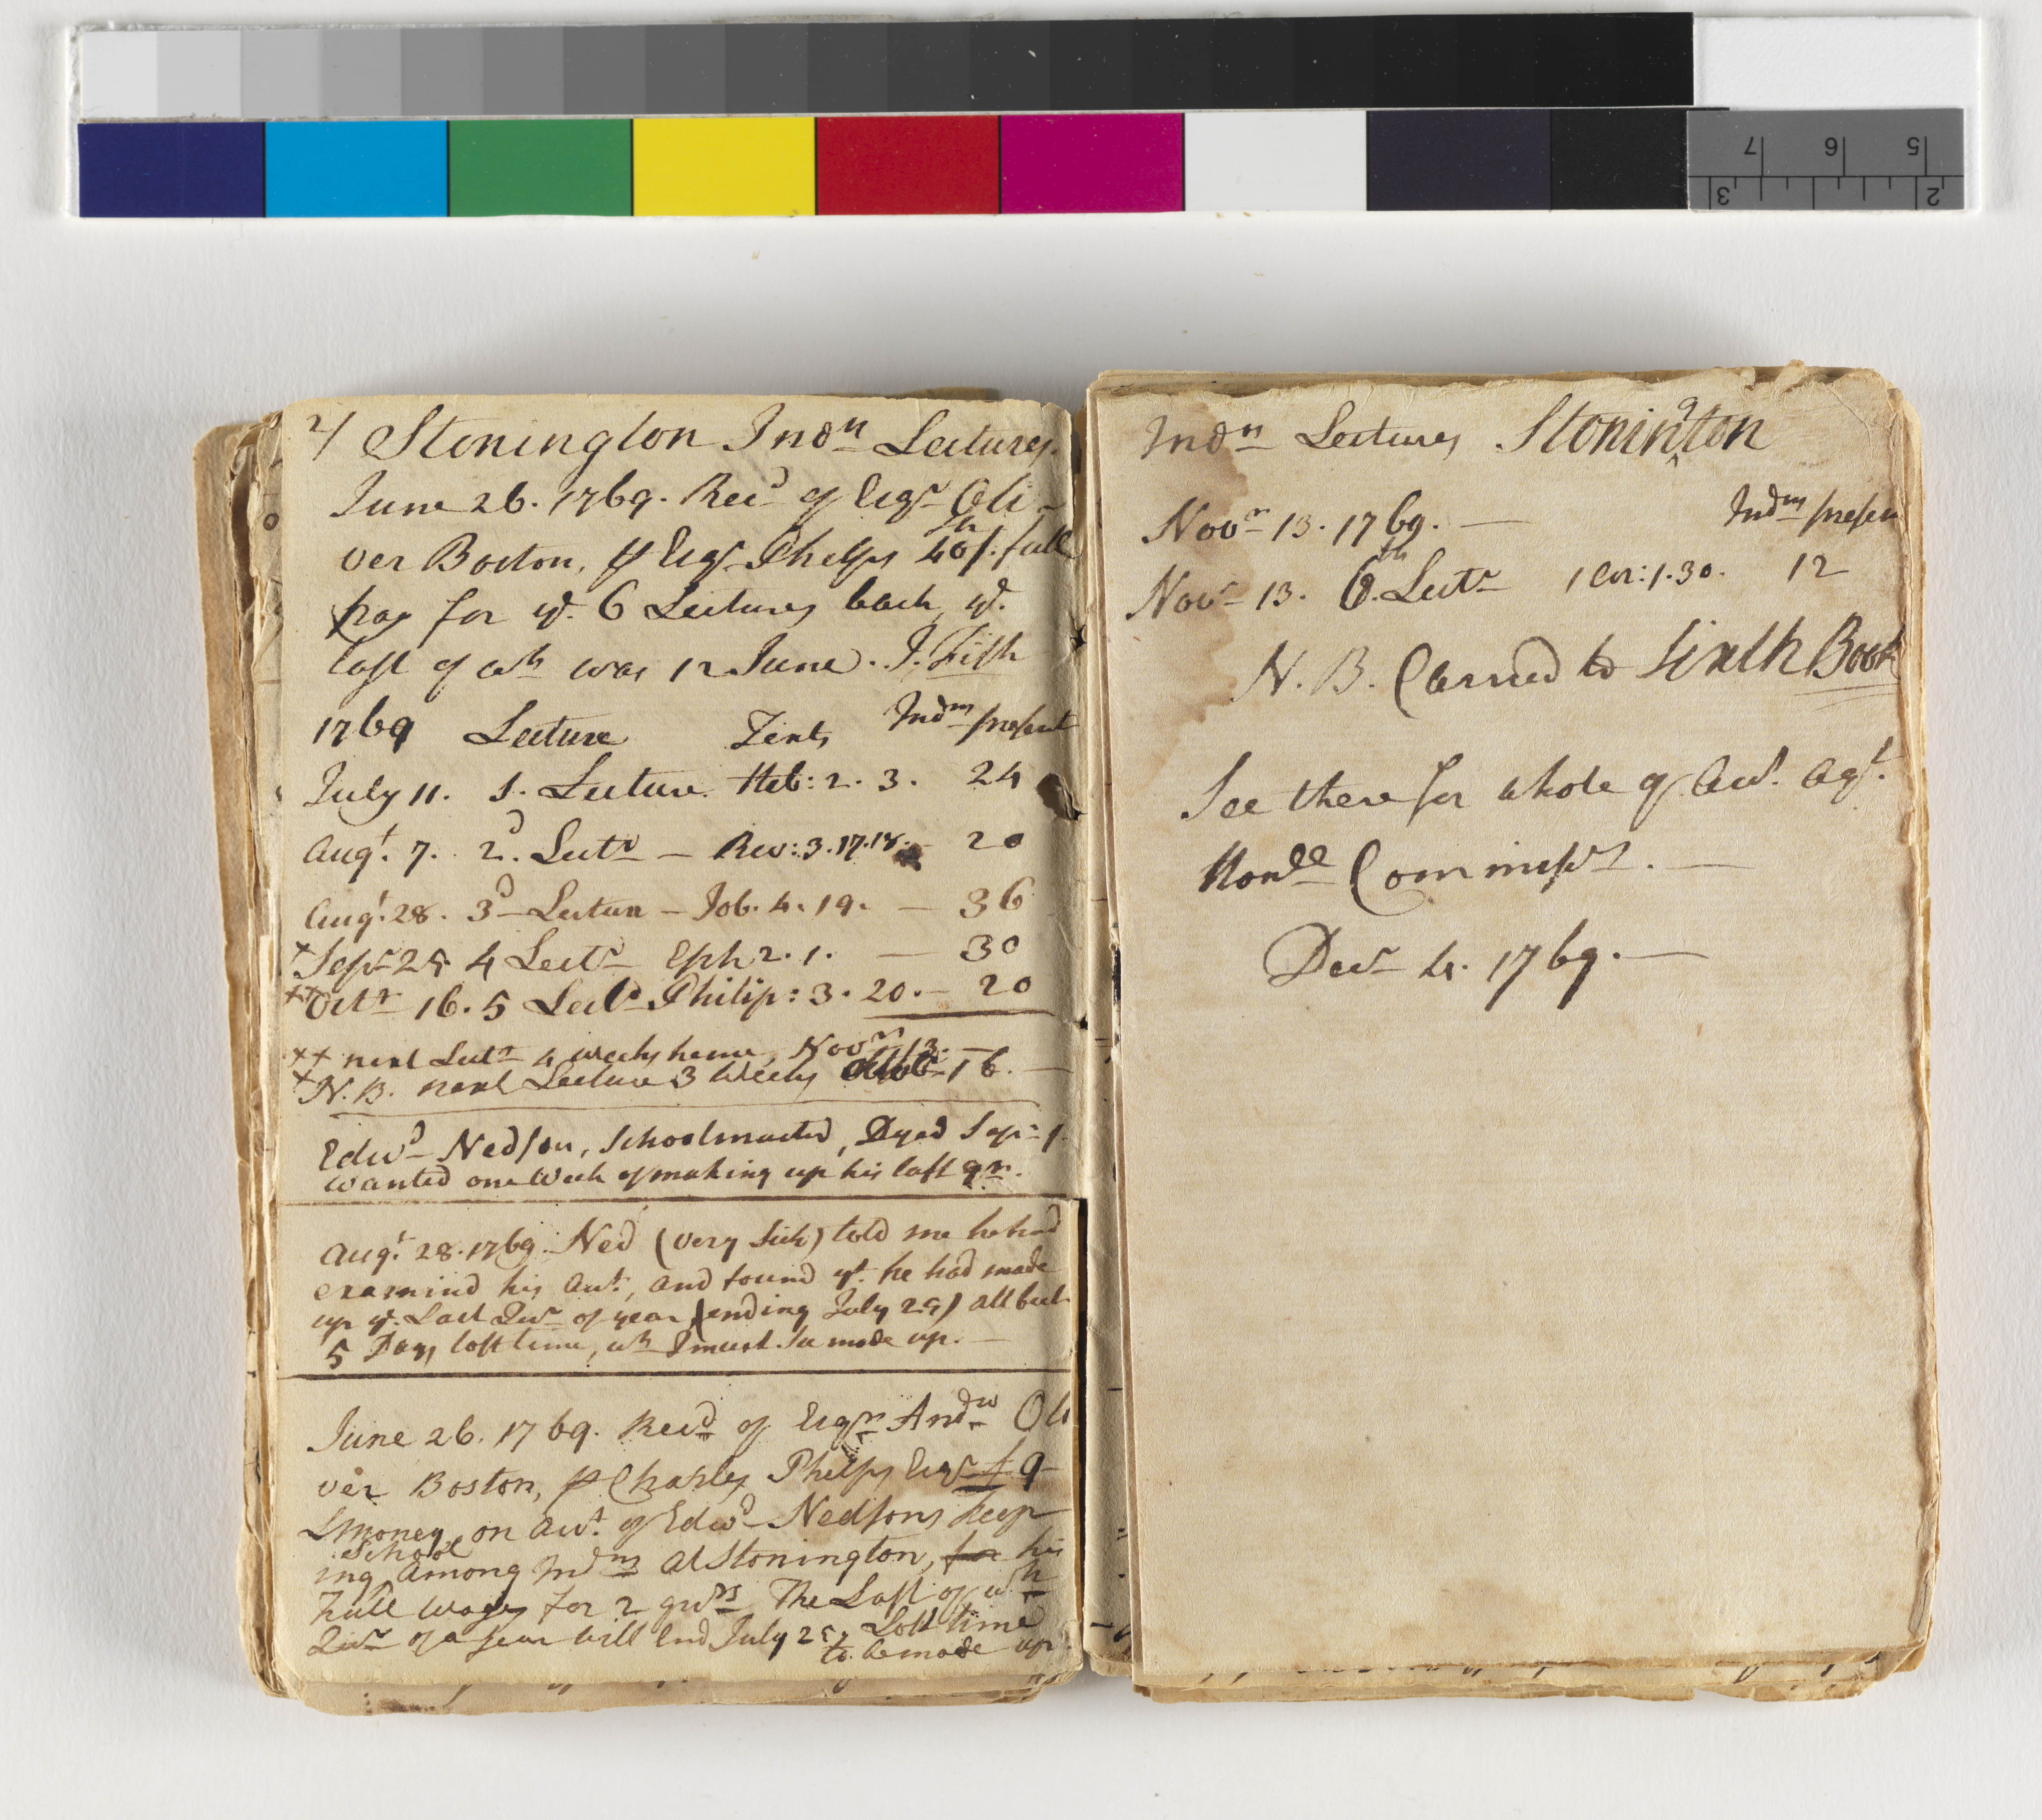 4 Stonington Indn Lectures.
June 26. 1769. Recd of Esqr Oli-
ver Boston, ⅌ Esqr Phelps 40/. full
pay for ye. 6 Lectures back, ye.
last of wh was 12 June. J. Fish
1769 Lecture Texts Indns present
July 11. 1. Lecture. Heb: 2. 3. 24
Augt. 7. 2d. Lectr — Rev: 3. 17. 18. — 20
Augt. 28. 3d Lecture — Job. 4. 19. — 36
+ Sepr 25 4 Lectr Eph 2. 1. — 30
++ Octr 16. 5 Lectr Philip: 3. 20. — 20
++ next Lectr 4 weeks hence, Novr 13. —
+ N. B. next Lecture 3 Weeks Octr 16. —
Edwd Nedson, Schoolmaster, Dyed Sepr 1.
wanted one Week of making up his last qr.
Augt 28. 1769. Ned (very Sick) told me he had
examind his Acct, and found yt. he had made
up ye. Last Qur of year (ending July 25) all but
5 Days lost time, wh must be made up. —
June 26. 1769. Recd of Esqr Andw Oli
ver Boston, ⅌ Charles Phelps Esqr £ 9
LMoney on acct. of Edwd Nedsons keep
School
ing among Indns at Stonington, for his
full wages for 2 qurs The Last of wh
Qur of a year will End July 25. Lost time
to be made up
Indn Lectures Stonington
Novr 13. 1769. — Indns presen
Novr 13. 6th. Lectr 1 Cor: 1. 30. 12
N. B. Carried to Sixth Book
See there for whole of Acct. agt.
Honble Commissrs. —
Decr 4. 1769. —
7 6 5
3 2